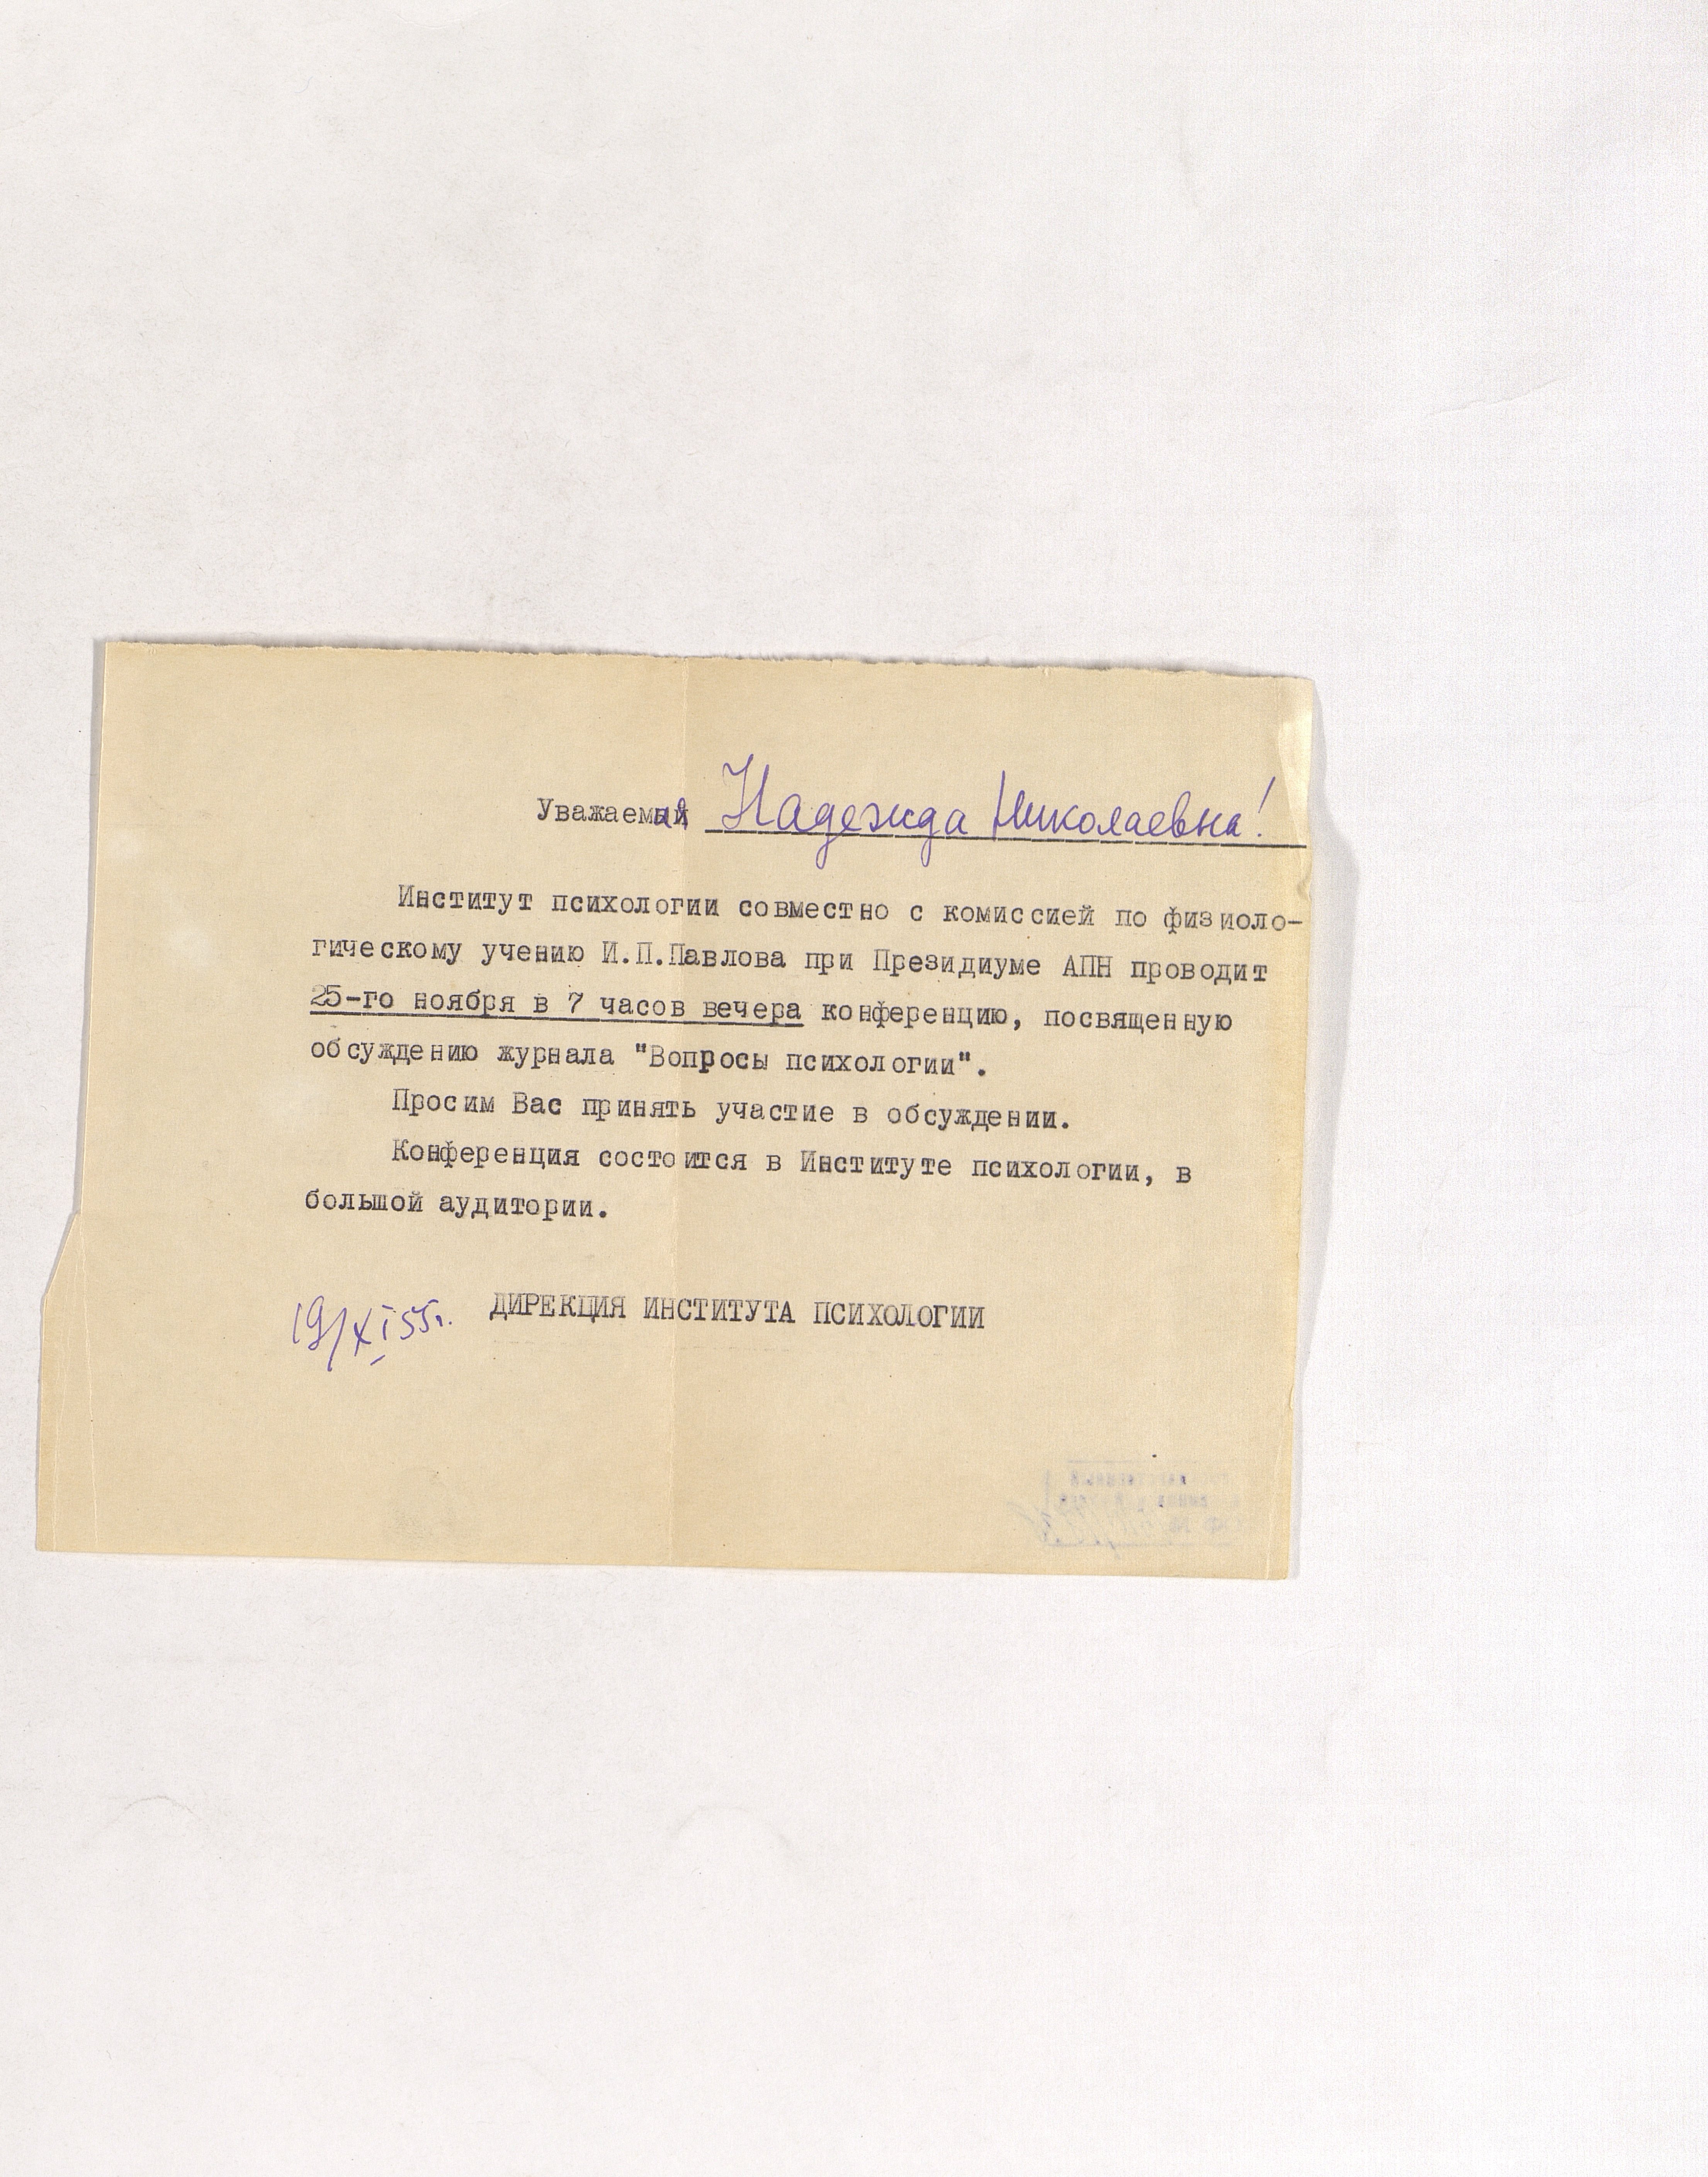 Уважаемая Надежда Николаевна!
Институт психологии совместно с комиссией по физиоло-
гическому учению И.П.Павлова при Президиуме АПН проводит
25-го ноября в 7 часов вечера конференцию, посвященную
обсуждению журнала "Вопросы психологии".
Просим Вас принять участие в обсуждении.
Конференция состоится в Институте психологии, в
большой аудитории.
19/XI 55г. ДИРЕКЦИЯ ИНСТИТУТА ПСИХОЛОГИИ